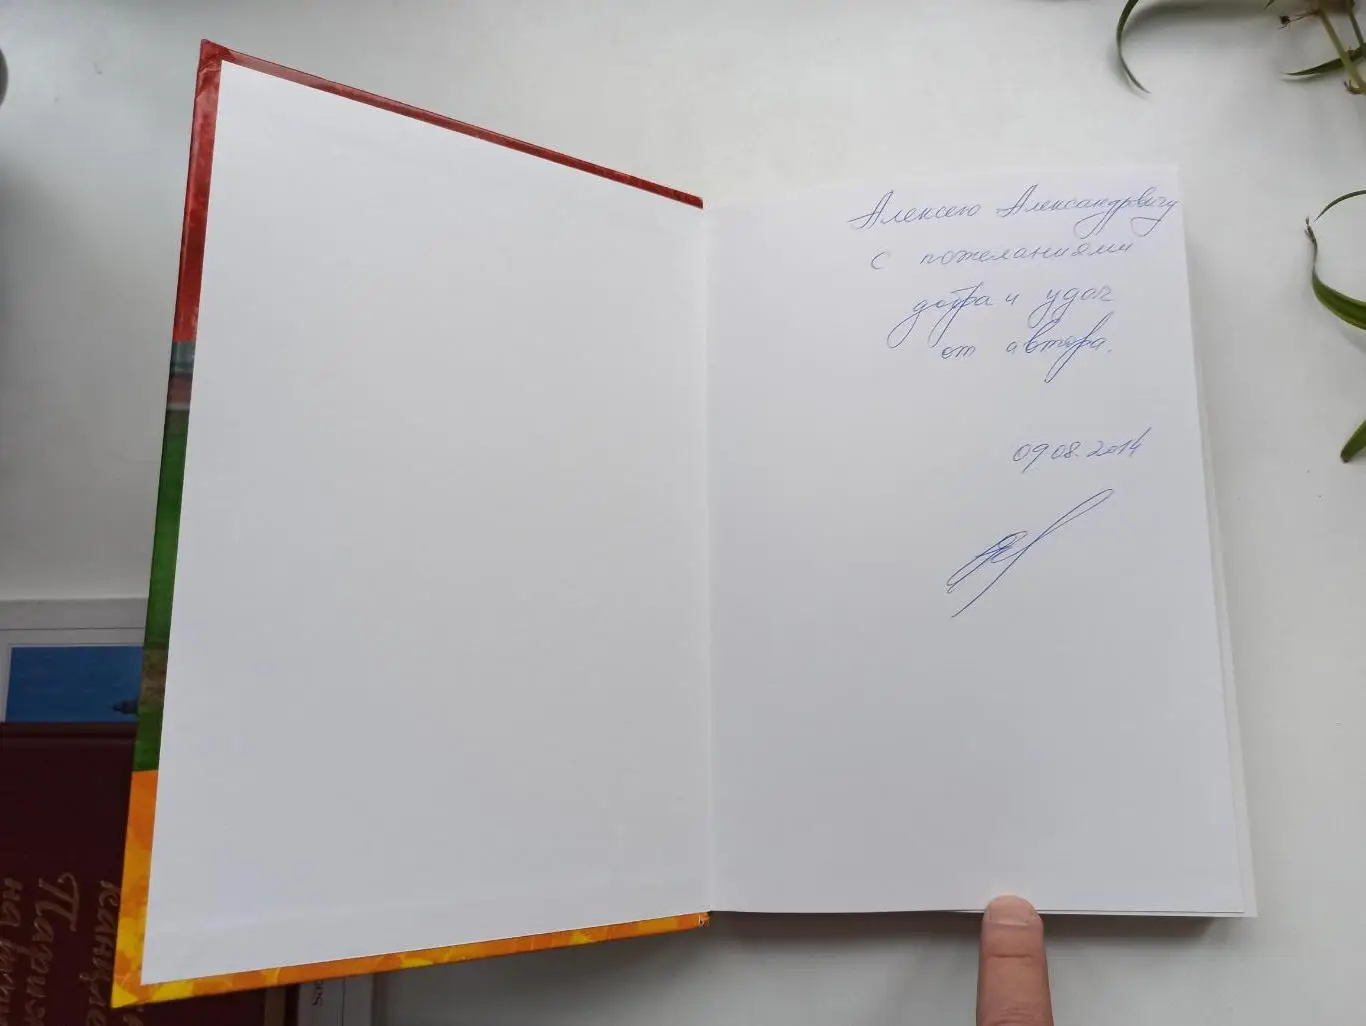 Алексею Александрвичу
с пожеланиями
добра и удач
от автора.
09.08.2014
Париж
на